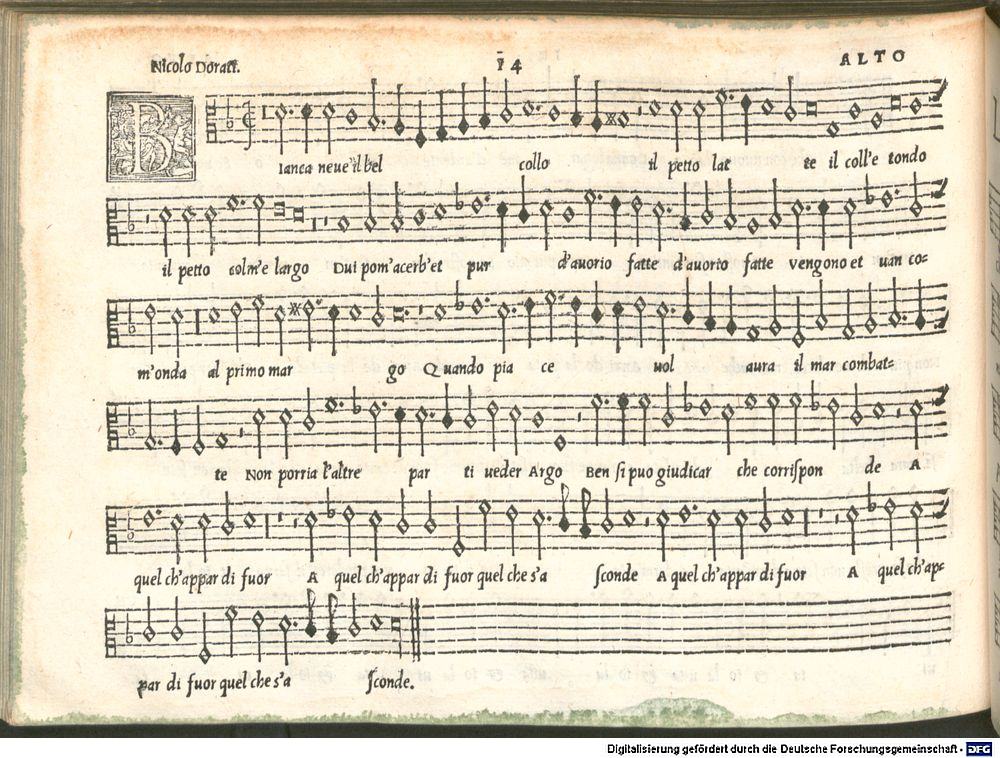 Nicolo Dorati. 14 ALTO
B
ianca neue'il bel collo il petto lat te il coll'e tondo
il petto colm'e largo Dui pom'acerb'et pur d'auorio fatte d'auorio fatte vengono et uan co=
m'onda al primo mar go Quando pia ce uol aura il mar combat=
te Non porria l'altre par ti ueder Argo Ben si puo giudicar che corrispon de A
quel ch'appar di fuor A quel ch'appar di fuor quel che s'a sconde A quel ch'appar di fuor A quel ch'ap=
par di fuor quel che s'a sconde.
Digitalisierung gefördert durch die Deutsche Forschungsgemeinschaft - DFG